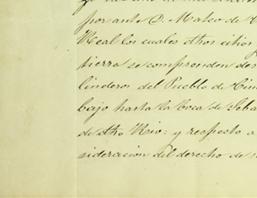 por ante D. Mateo de
Real los cuales dhos sitios
tierra se comprenden des
linderos del Pueblo de
bajo hasta la boca de
de dho Rio: y respeto a
sideración del derecho de